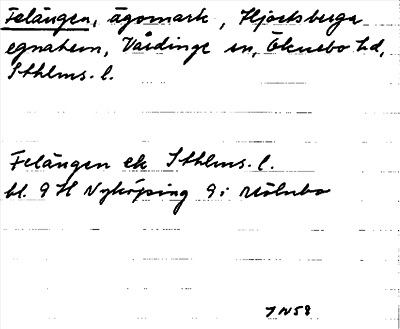 Felängen, ägomark, Hjortsberga
egnahem, Vårdinge sn, Öknebo hd,
Sthlms. l.
Felängen ek Sthlms. l.
bl. 9 H Nyköping 9i Mölnbo
JN58